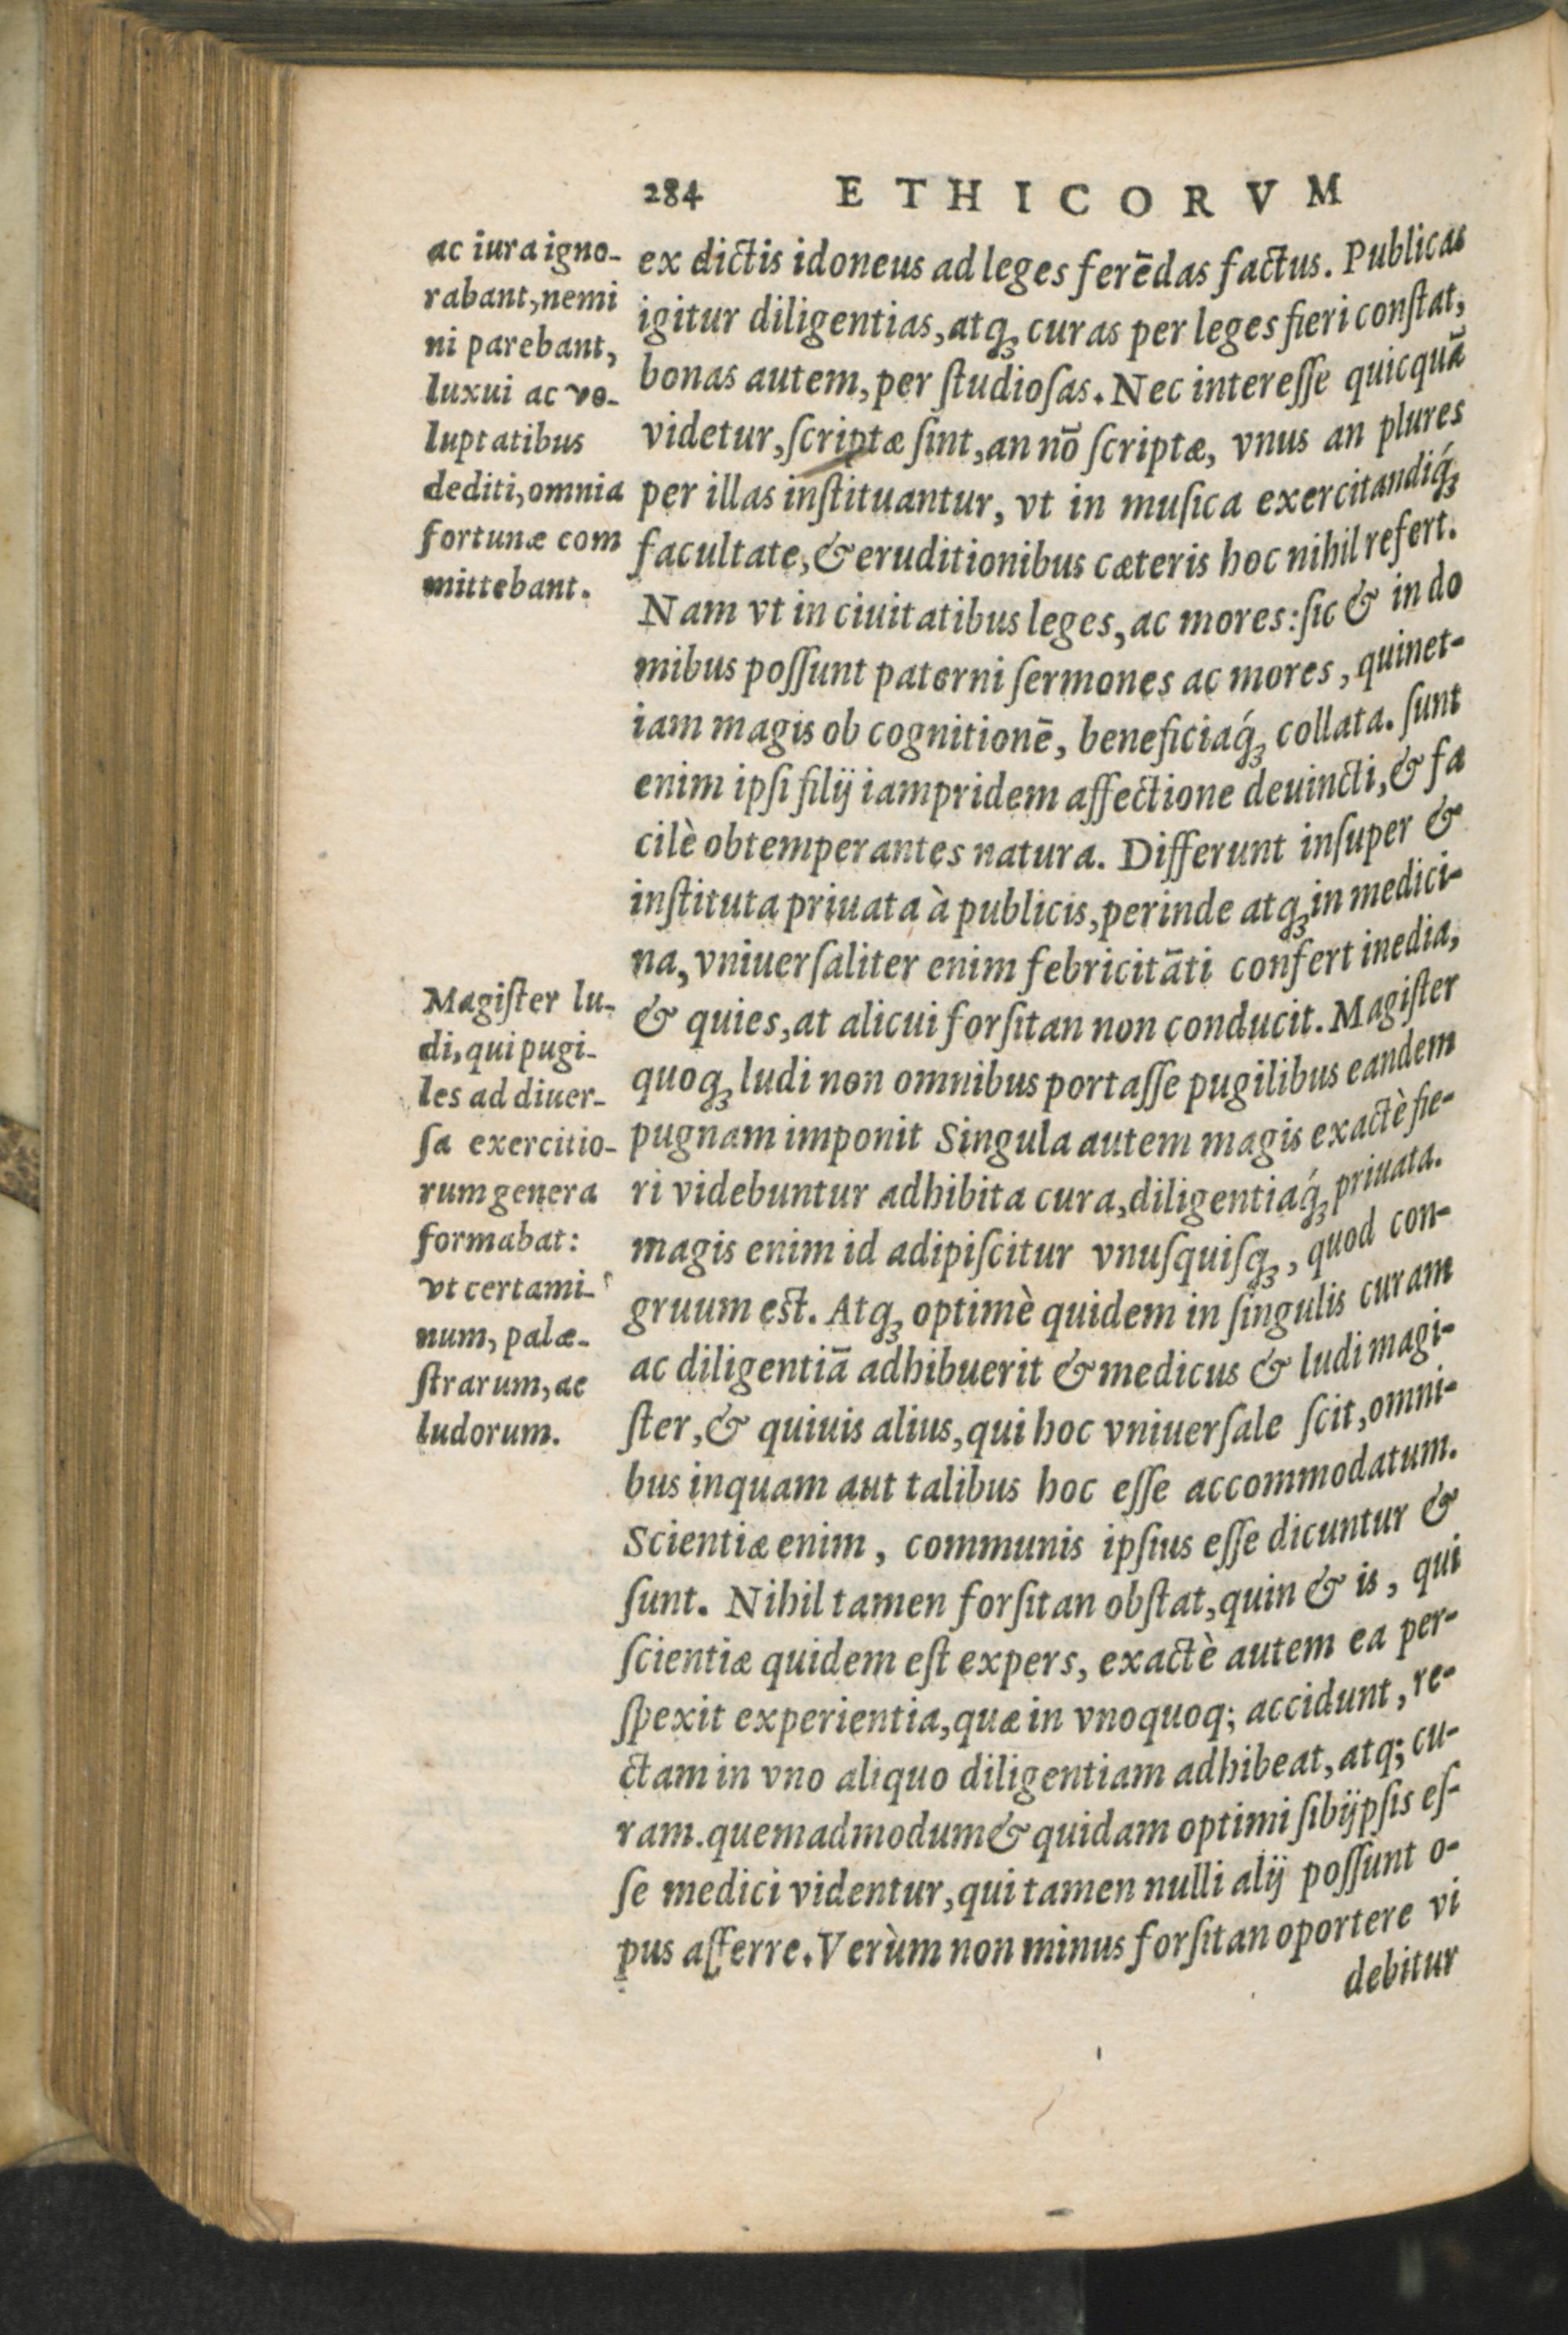 284 ETHICORVM
ac iura igno-
rabant, nemi
ni parebant,
luxui ac vo-
luptatibus
dediti, omnia
fortunæ com
mittebant.
ex dictis idoneus ad leges ferēdas factus. Publicas
igitur diligentias, atqꝫ curas per leges fieri conſtat,
bonas autem, per ſtudioſas. Nec intereſſe quicquā
videtur, ſcriptæ ſint, an nō ſcriptæ, vnus an plures
per illas inſtituantur, vt in muſica exercitandiq́ꝫ
facultate, & eruditionibus cæteris hoc nihil refert.
Nam vt in ciuitatibus leges, ac mores: ſic & in do
mibus poſſunt paterni ſermones ac mores, quinet-
iam magis ob cognitionē, beneficiaq́ꝫ collata. ſunt
enim ipſi filij iampridem affectione deuincti, & fa
cilè obtemperantes natura. Differunt inſuper &
inſtituta priuata à publicis, perinde atqꝫ in medici-
na, vniuerſaliter enim febricitāti confert inedia,
& quies, at alicui forſitan non conducit. Magiſter
quoqꝫ ludi non omnibus portaſſe pugilibus eandem
pugnam imponit Singula autem magis exactè fie-
ri videbuntur adhibita cura, diligentiaq́ꝫ priuata.
magis enim id adipiſcitur vnuſquiſqꝫ, quod con-
gruum est. Atqꝫ optimè quidem in ſingulis curam
ac diligentiā adhibuerit & medicus & ludi magi-
ſter, & quiuis alius, qui hoc vniuerſale ſcit, omni-
bus inquam aut talibus hoc eſſe accommodatum.
Scientiæ enim, communis ipſius eſſe dicuntur &
ſunt. Nihil tamen forſitan obſtat, quin & is, qui
ſcientiæ quidem eſt expers, exactè autem ea per-
ſpexit experientia, quæ in vnoquoq; accidunt, re-
ctam in vno aliquo diligentiam adhibeat, atq; cu-
ram. quemadmodum & quidam optimi ſibijpſis eſ-
ſe medici videntur, qui tamen nulli alij poſſunt o-
pus afferre. Verùm non minus forſitan oportere vi
debitur
Magiſter lu-
di, qui pugi-
les ad diuer-
ſa exercitio-
rum genera
formabat:
vt certami-
num, palæ-
ſtrarum, ac
ludorum.